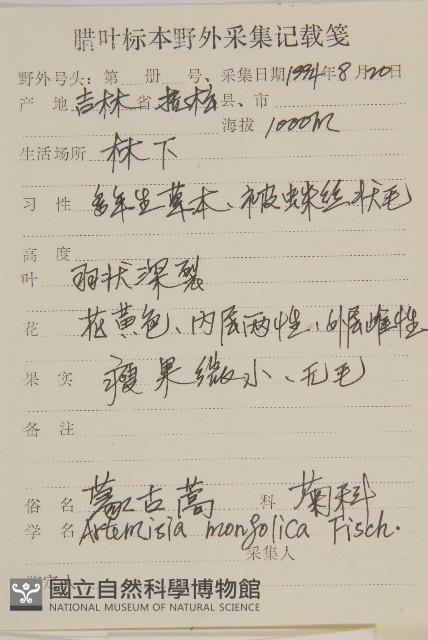 腊叶标本野外采集记载笺
野外号头：第 册 号、采集日期1994年8月20日
产 地 吉林省 抚松县、市
海拔 1000m
生活场所 林下
习 性 多年生草本、被蛛丝状毛
高 度
叶 羽状深裂
花 花黄色、内层两性、外层雌性
果 实 瘦果微小、无毛
备 注
俗 名 蒙古蒿 科 菊科
学 名 Artemisia mongolica Fisch.
采集人
國立自然科學博物館
NATIONAL MUSEUM OF NATURAL SCIENCE